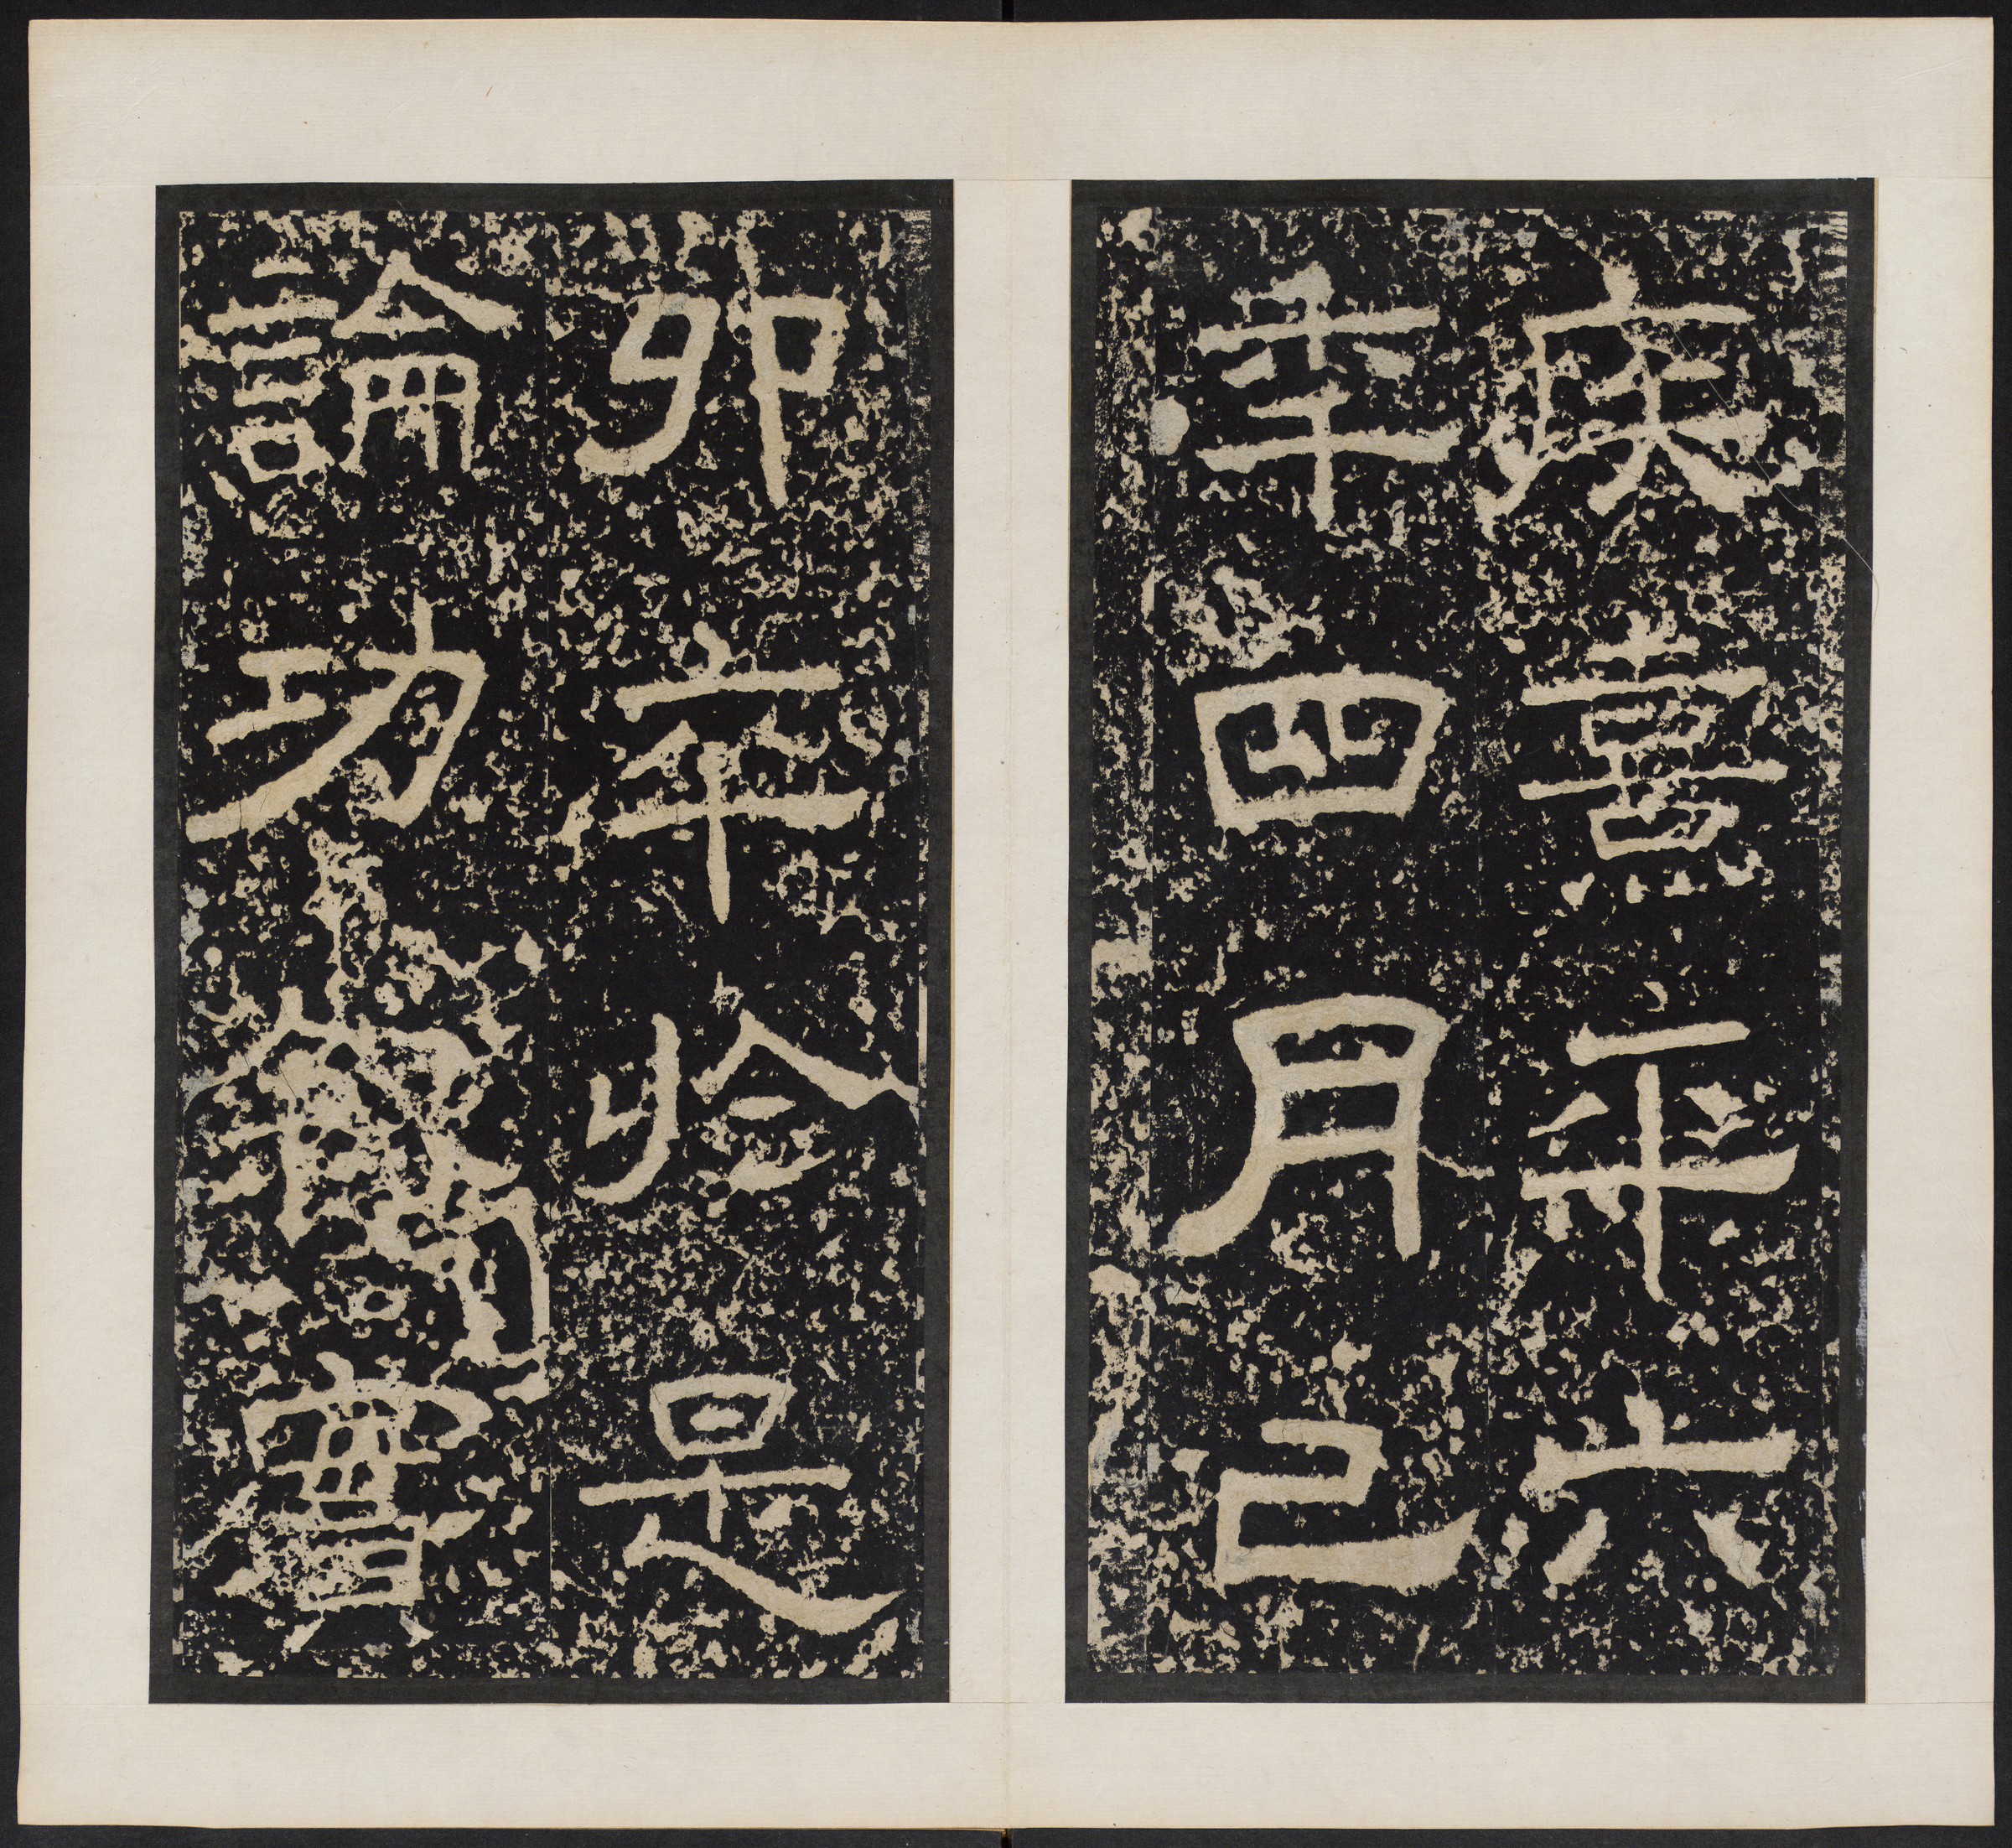 疾熹平六
年四月己
卯卒於是
論功敘實